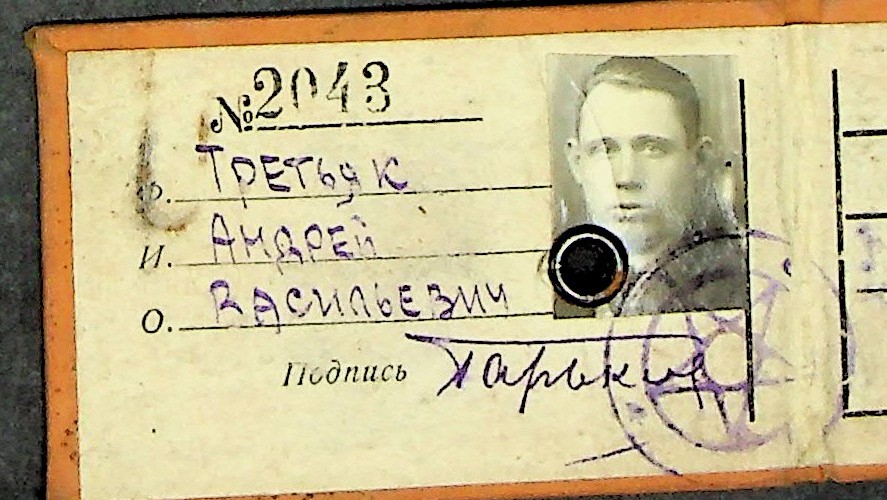 № 2043
Ф. ТРЕТЬЯК
И. АНДРЕЙ
О. ВАСИЛЬЕВИЧ
Подпись